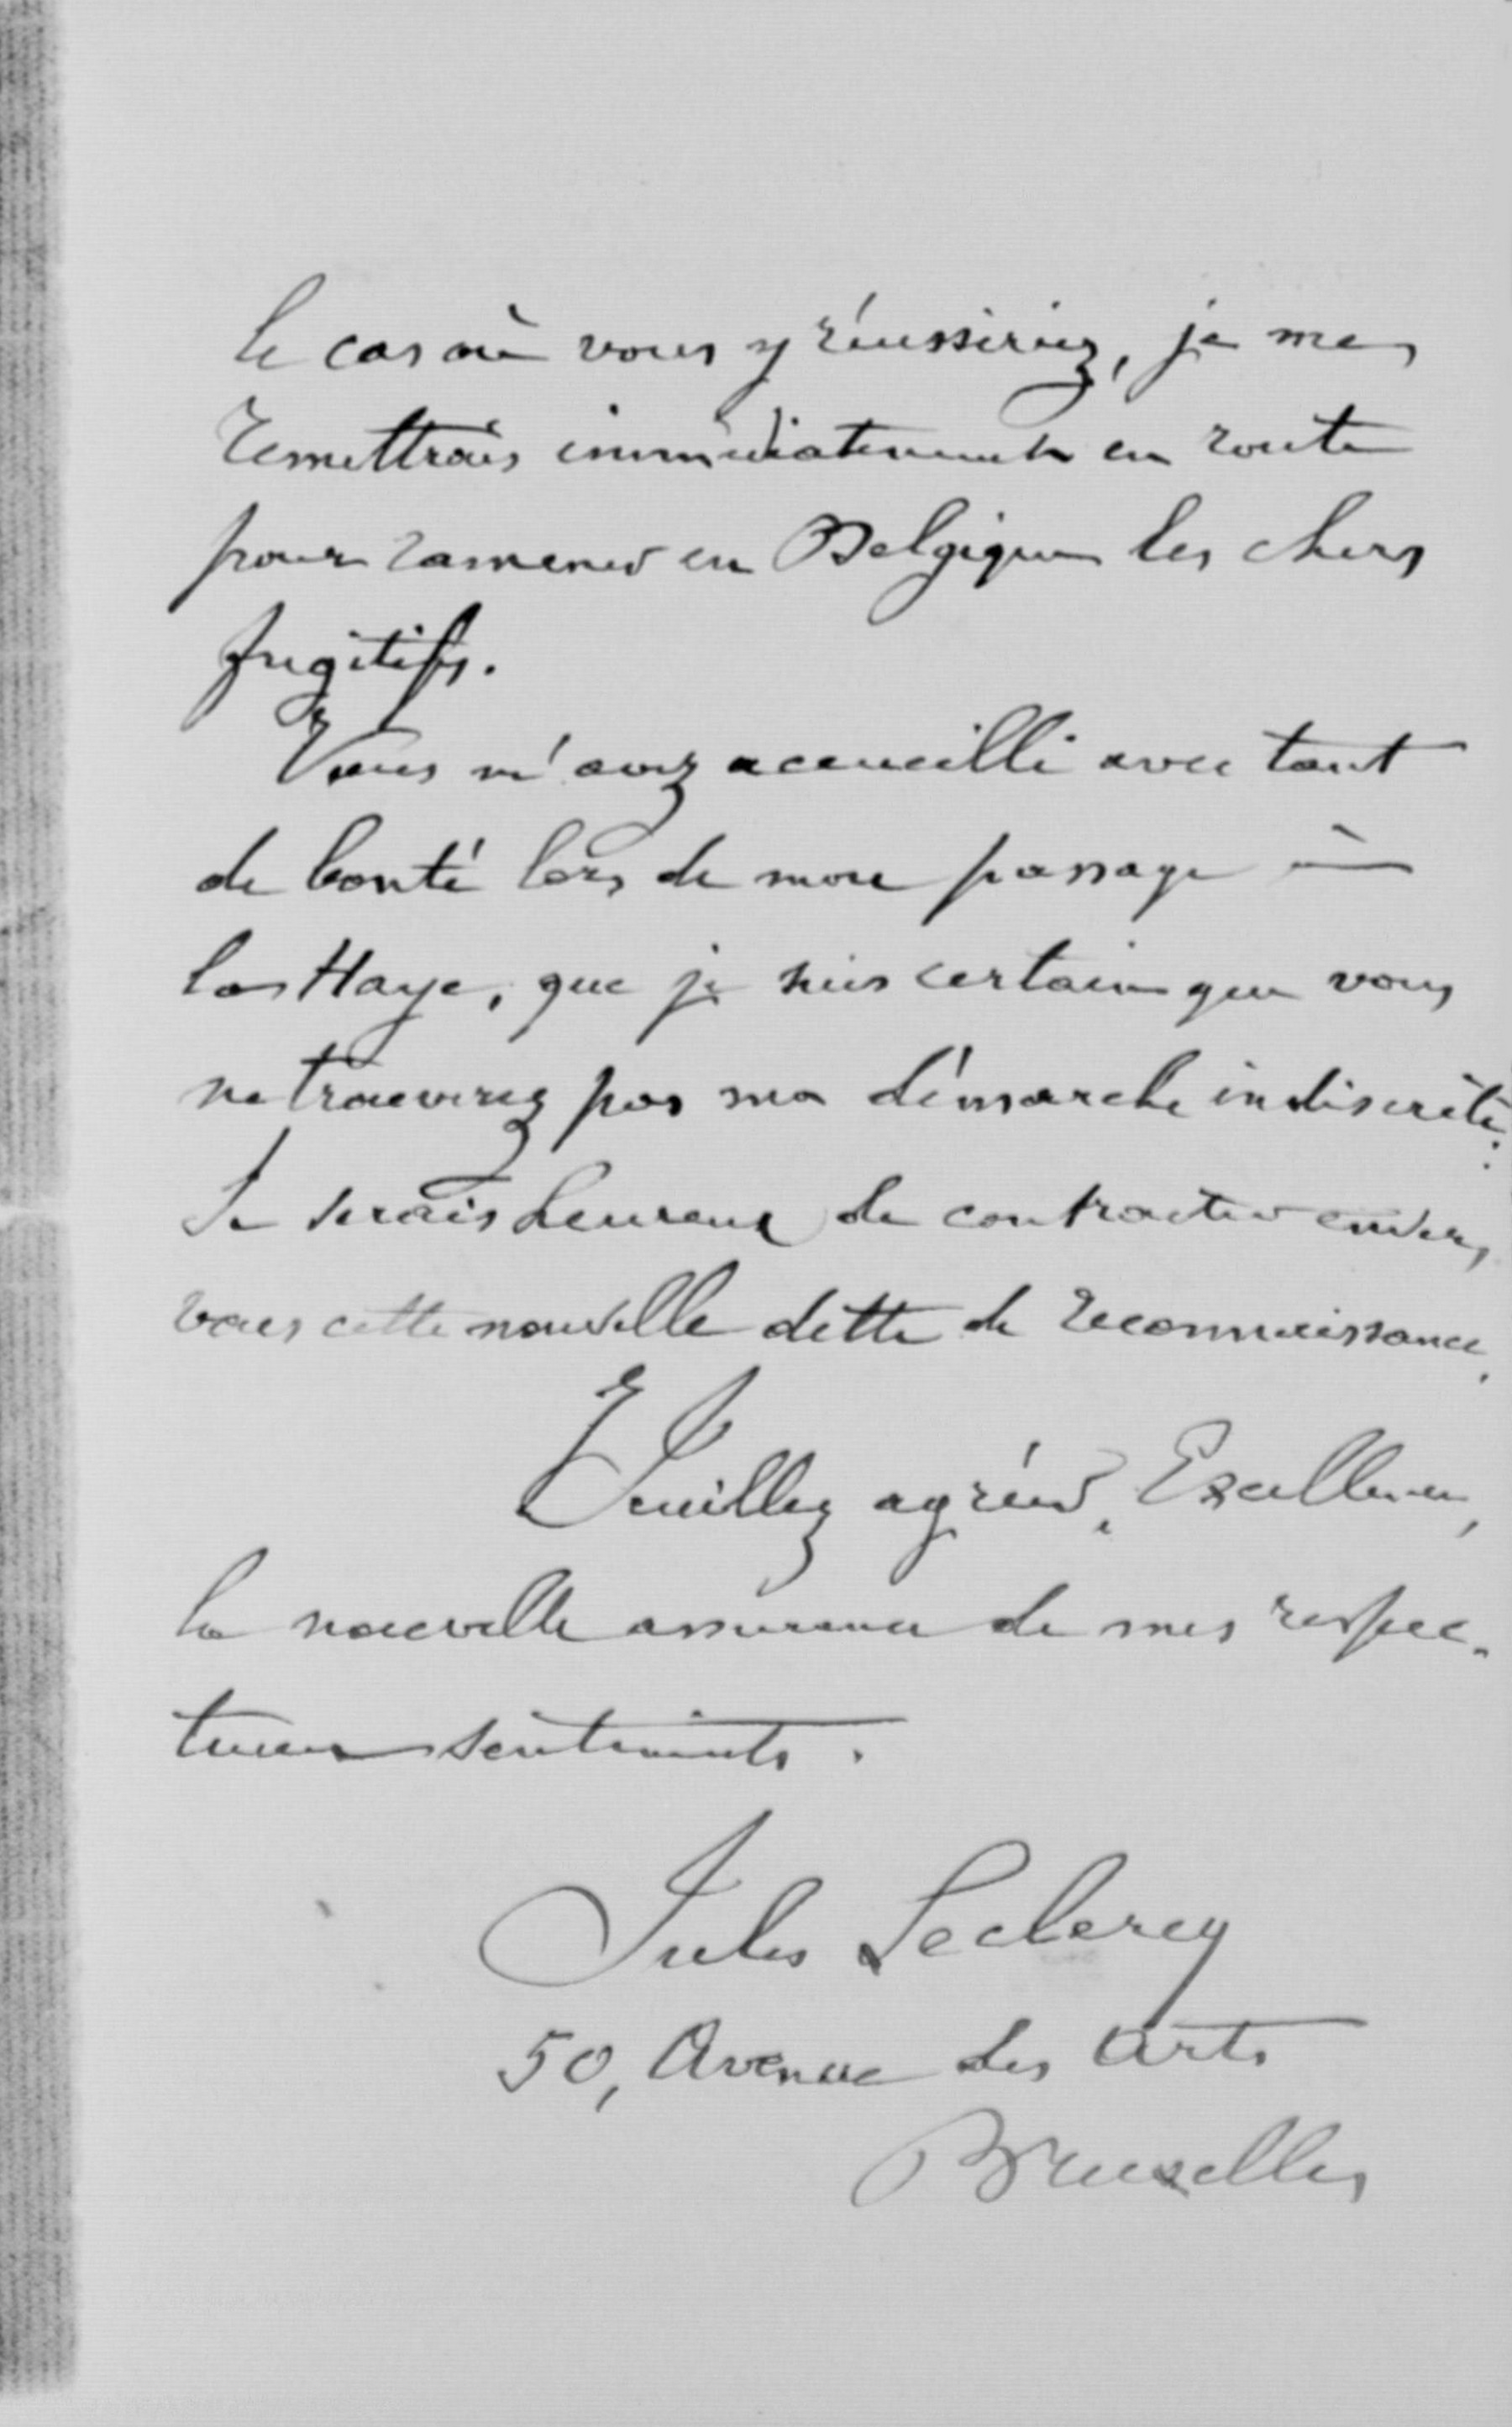 le cas où vous y réussiriez, je me
remettrais immédiatement en route
pour ramener en Belgique les chers
fugitifs.
Vous m'avez accueilli avec tant
de bonté lors de mon passage à
la Haye, que je suis certain que vous
ne trouverez pas ma démarche indiscrète.
Je serais heureux de contracter envers
vous cette nouvelle dette de reconnaissance.
Veuillez agréer, Excellence,
la nouvelle assurance de mes respec-
tueux sentiments.
Jules Leclercq
50, Avenue des Arts
Bruxelles